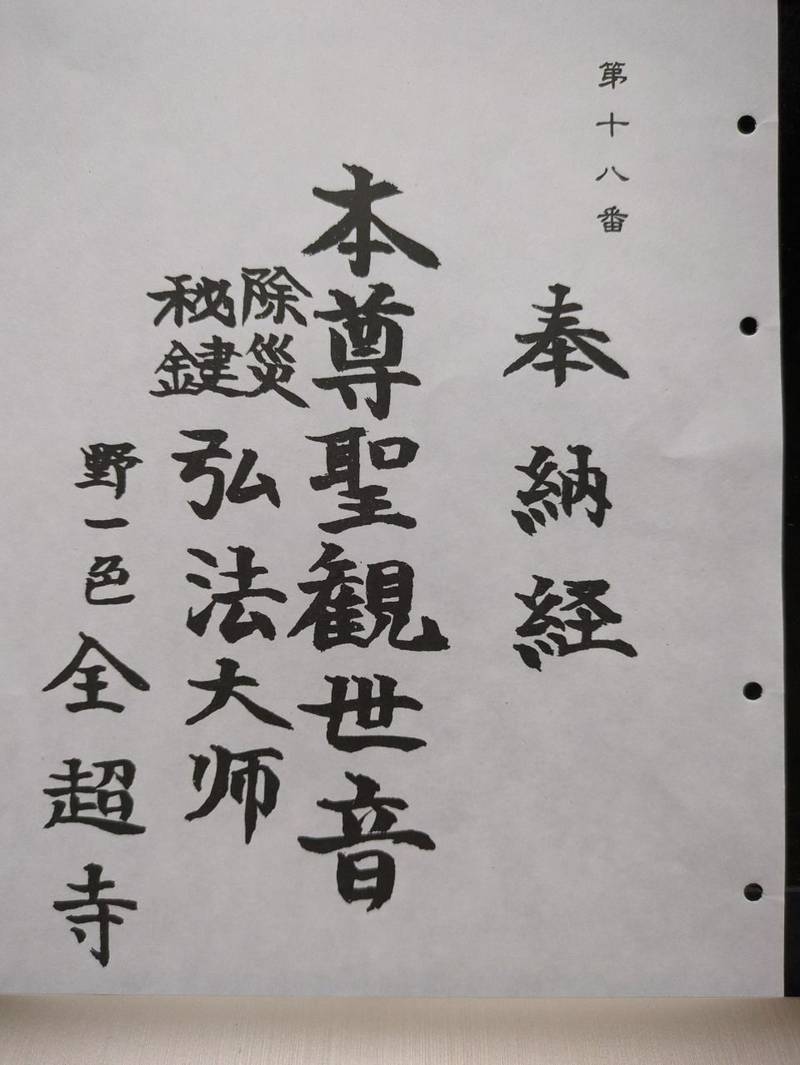 第十八番
奉納経
本尊聖観世音
除災
秘鍵
弘法大师
野一色
全超寺